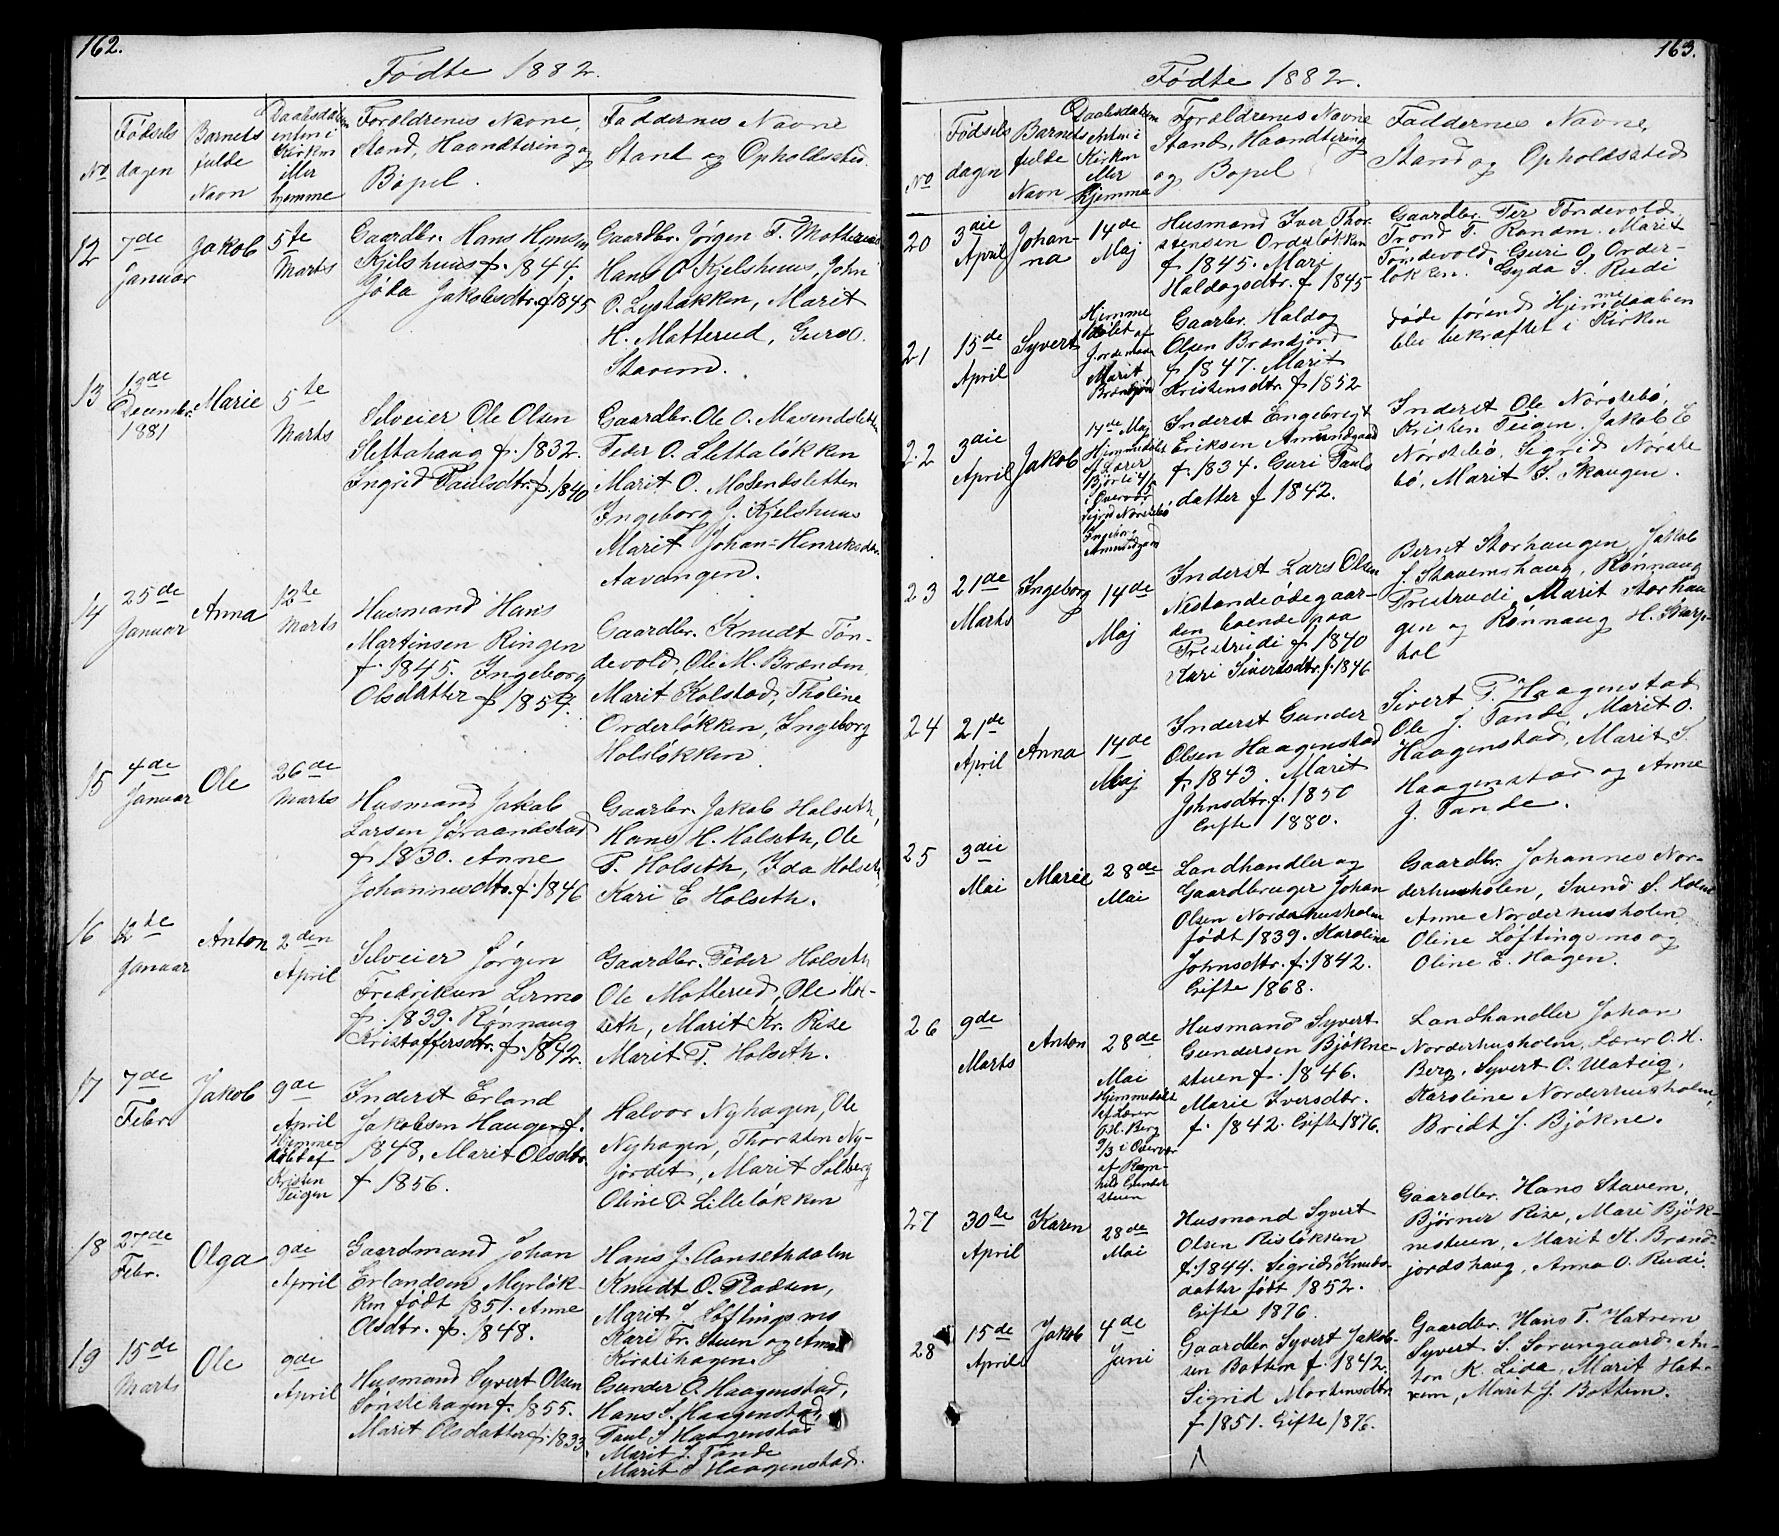 162.
Fødte 1882.
No
Fødsels
dagen
Barnets
fulde
Navn
Daabsdatum
enten i
Kirken
eller
hjemme
Forældrenes Navne,
Stand, Haandtering og
Bopel.
Faddernes Navne
Stand og Opholdssted.
12
7de
Januar
Jakob
5te
Marts
Gaardbr. Hans Hansen
Kjelshuus f. 1844.
Jøda Jakobsdtr. f 1845
Gaardbr. Jørgen T. Motterud
Hans O. Kjelshuus, John
O. Lysløkken, Marit
H. Motterud, Guro O.
Stavem.
13
13de
Decembr.
1881
Marie
5te
Marts
Selveier Ole Olsen
Slettahaug f. 1832.
Ingrid Paulsdtr. f. 1840
Gaardbr. Ole O. Mosendsletten
Peder O. Slettaløkken
Marit O. Mosendsletten
Ingeborg J. Kjelshuus
Marit Johan-Henriksdtr.
Aavangen.
14
25de
Januar
Anna
12te
Marts
Husmand Hans
Martinsen Ringen
f. 1845. Ingeborg
Olsdatter f 1854.
Gaardbr. Knudt Tøn-
devold, Ole M. Brænden,
Marit Kolstad, Tholine
Orderløkken, Ingeborg
Holsløkken.
15
4de
Januar
Ole
26de
Marts
Husmand Jakob
Larsen Joraandstad
f 1830. Anne
Johannesdtr. f. 1846
Gaarbr. Jakob Holseth,
Hans H. Holseth, Ole
P. Holseth, Ida Holseth,
Kari E Holseth.
16
12te
Januar
Anton
2den
April
Selveier Jørgen
Fredriksen Lermo
f. 1839. Rønnaug
Kristoffersdtr. f. 1842.
Gaardbr. Peder Holseth
Ole Motterud, Ole Hol-
seth, Marit Kr. Rise
Marit P. Holseth.
17
7de
Febr.
Jakob
9de
April
Hjemme-
døbt af
Kristen
Teigen
Inderst Erland
Jakobsen Haugen f.
1848, Marit Olsdtr.
f 1856.
Halvor Nyhagen, Ole
Nyhagen, Thorsten Ny-
jordet, Marit Solberg
Oline O Lilleløkken
18
27de
Febr.
Olga
9de
April
Gaardmand Johan
Erlandsen Myrløk-
ken født 1851. Anne
Olsdtr. f. 1848.
Hans J. Aansethdalen
Knudt O. Pladsen,
Marit S Løftingsmo
Kari Fr. Stuen og Anne
Kirstihagen
19
15de
Marts
Ole
9de
April
Husmand Syvert Olsen
Sønstehagen f. 1855.
Marit Olsdatter f. 1833.
Gunder O. Haagenstad,
Hans S. Haagenstad,
Paul S Haagenstad
Marit J. Tande
Marit S Haagenstad.
163.
Fødte 1882.
No
Fødsels
dagen
Barnets
fulde
Navn
Daabsdatum
enten i
Kirken
eller
hjemme
Forældrenes Navne
Stand, Haandtering
og Bopel
Faddernes Navne,
Stand og Opholdssted
20
3die
April
Johan-
na
14de
Maj
Husmand Iver Thor-
stensen Orderløkken
f 1845. Mari
Haldogsdtr. f 1845
Gaardbr. Per Tøndevold,
Trond T. Randm. Marit
Tøndevold, Guri O. Order-
løkken. Gyda S. Rudi
21
15de
April
Syvert
Hjemme
døbt af
Jordemoder
Marit
Brændjord
Gaarbr. Haldog
Olsen Brændjord
f 1847. Marit
Kristensdtr. f 1852
døde førend Hjemmedaaben
blev bekræftet i Kirken
22
3die
April
Jakob
14de Maj
Hjemmedøbt
af Lærer
Bjørli 4/5
i Overvær
Sigrid Nørstebø
Ingebor
Amundgaard
Inderst Engebregt
Eriksen Amundgaard
f. 1834. Guri Pauls
datter f 1842.
Inderst Ole Nørstebø,
Kristen Teigen. Jakob E
Nørstebø, Sigrid Nørste
bø, Marit S. Skaugen.
23
21de
Marts
Ingeborg
14de
Maj
Inderst Lars Olsen
Nestandeødegaar-
den boende paa
Prestrudi f. 1840
Kari Siverdsdtr. f. 1846
Bernt Storhaugen, Jakob
J. Stavemshaug, Rønnaug
Prestrudi, Marit Storhau
gen og Rønnaug H. Skarp-
hol
24
21de
April
Anna
14de
Maj
Inderst Gunder
Olsen Haagenstad
f. 1843. Marit
Johnsdtr. f. 1850
Gifte 1880.
Sivert P. Haagenstad
Ole J. Tande, Marit O.
Haagenstad, Marit S.
Haagenstad og Anne
J. Tande.
25
3die
Mai
Marie
28de
Mai
Landhandler og
Gaardbruger Johan
Olsen Norderhusholm
født 1839. Karoline
Johnsdtr. f. 1842.
Gifte 1868.
Gaardbr. Johannes Nor-
derhusholen, Svend S. Holm
Anne Norderhusholen
Oline Løftingsmo og
Oline E. Hagen.
26
9de
Marts
Anton
28de
Mai
Hjemmedøbt
af Lærer
O. H. Berg
9/3 i Overvær
af Ragn-
hild Gunder
stuen
Husmand Syvert
Gundersen Bjøkne-
stuen f. 1846.
Marie Iversdtr.
f. 1842. Gifte 1876.
Landhandler Johan
Norderhusholm, Lærer O. H.
Berg, Syvert O. Ulateig,
Karoline Norderhusholm,
Bridt J. Bjøkne.
27
30te
April
Karen
28de
Mai
Husmand Syvert
Olsen Risløkken
f. 1844. Sigrid Knuds-
datter født 1852.
Gifte 1876.
Gaardbr. Hans Stavem,
Bjørner Rise, Mari Bjøk-
nestuen, Marit K. Brænd-
jordshaug, Anna O. Rudi.
28
15de
April
Jakob
4de
Juni
Gaardbr. Syvert Jakob-
sen Bottem f. 1842.
Sigrid Mortensdtr.
f 1851. Gifte 1876.
Gaardbr. Hans T. Hatrem
Syvert S. Sorungaard, An-
ton K. Lide, Marit Hat-
rem, Marit J. Bottem.